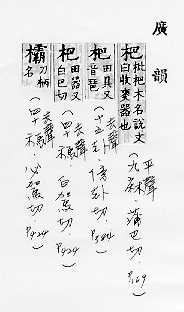 廣韻
杷 枇杷木名說文曰收麥器也 (平聲 九麻·蒲巴切·P.169)
杷 田具又音琶 (去聲 十五卦·傍卦切·
杷 田器又白巴切 (去聲 四十禡·白駕切·P.424)
欛 刀柄名 (去聲 四十禡·必駕切·P.424)